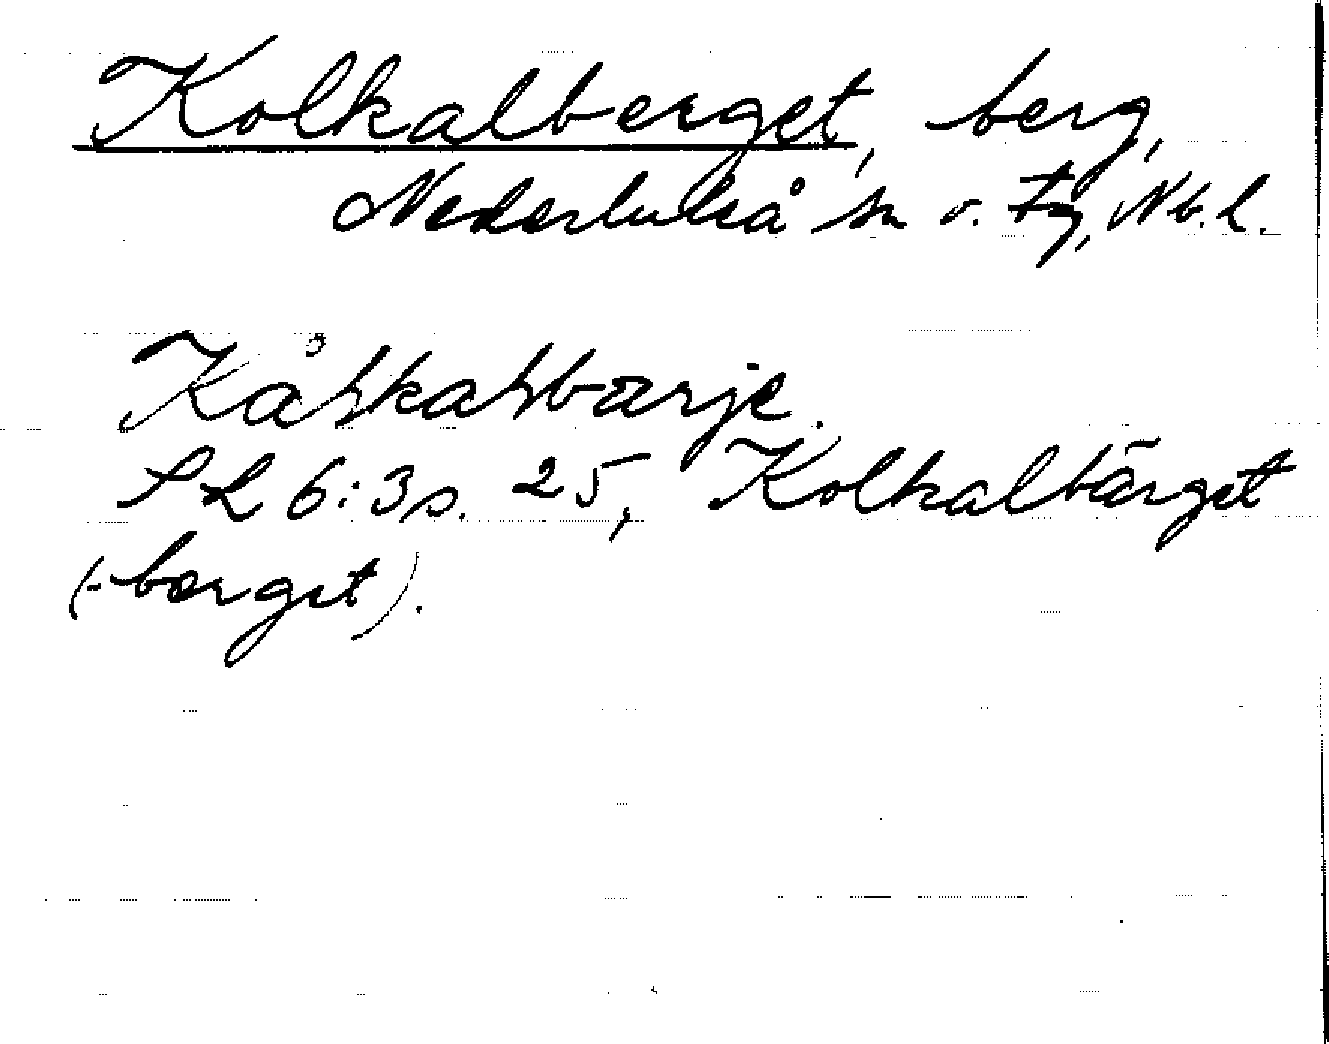 Kolkalberget, berg,
Nederluleå sn o. tg, Nb. L.
Kåłkałbärje.
SL 6:3 s. 25, Kolkalbärget
(-berget).